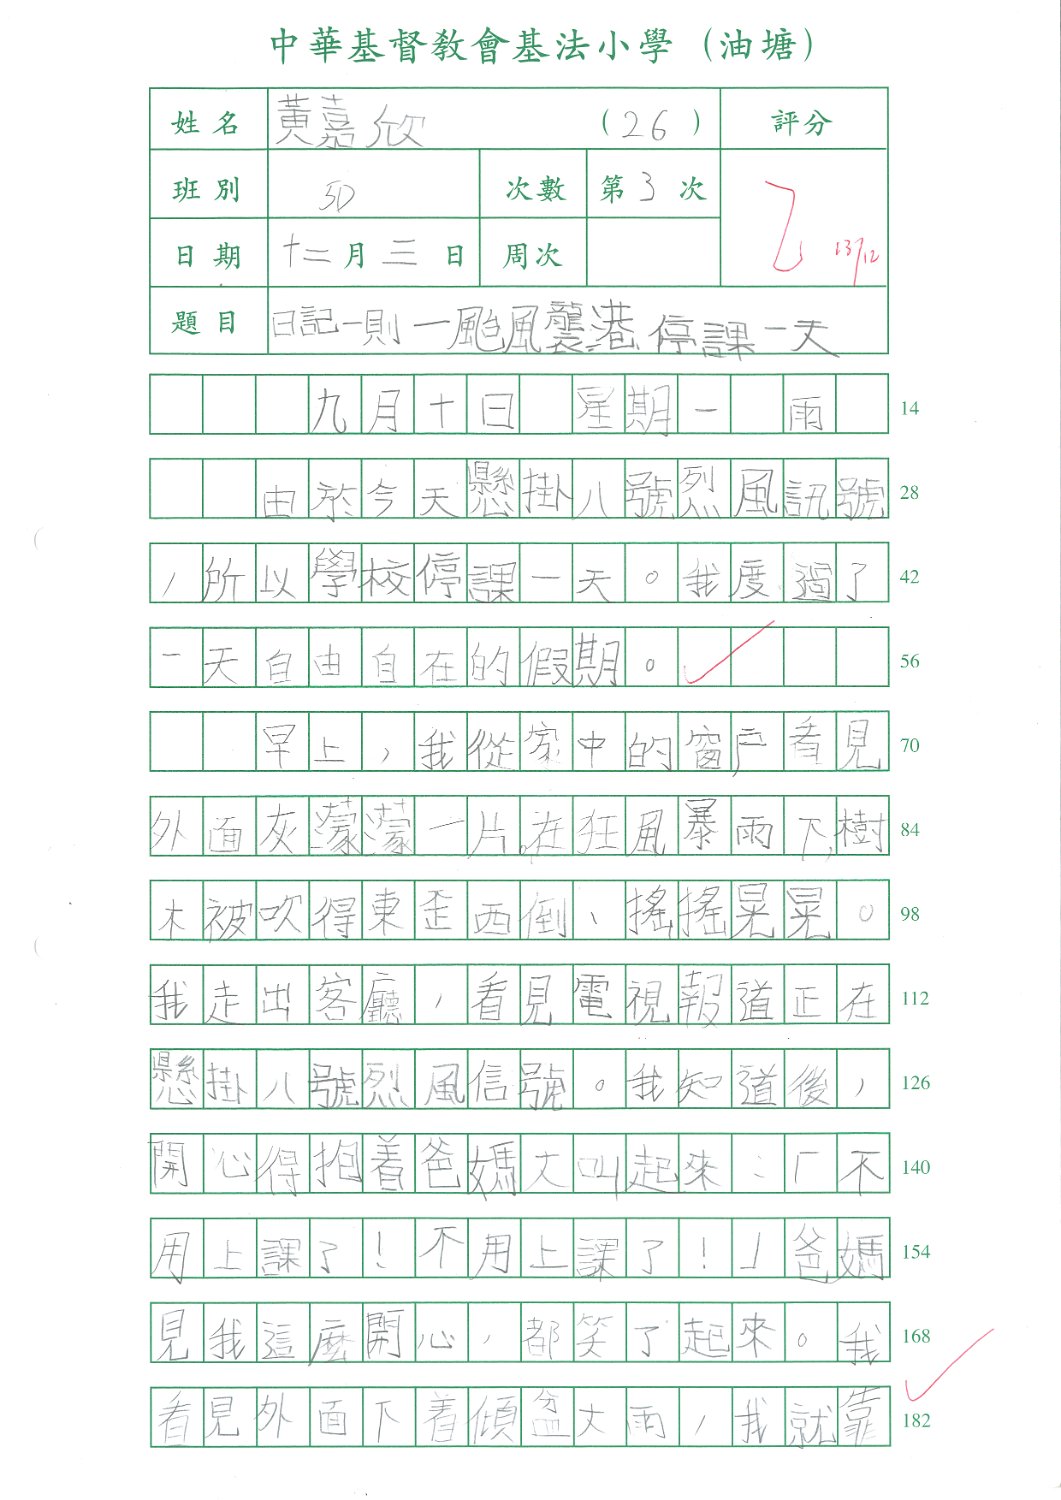 中華基督教會基法小學（油塘）
姓名 黃嘉欣 （26） 評分
班別 5D 次數 第3次 乙 13/12
日期 十二月三日 周次
題目 日記一則—颱風襲港停課一天
九月十日 星期一 雨 14
由於今天懸掛八號烈風訊號 28
，所以學校停課一天。我度過了 42
一天自由自在的假期。 56
早上，我從家中的窗戶看見 70
外面灰濛濛一片，在狂風暴雨下，樹 84
木被吹得東歪西倒、搖搖晃晃。 98
我走出客廳，看見電視報道正在 112
懸掛八號烈風信號。我知道後， 126
開心得抱着爸媽大叫起來：「不 140
用上課了！不用上課了！」爸媽 154
見我這麼開心，都笑了起來。我 168
看見外面下着傾盆大雨，我就靠 182